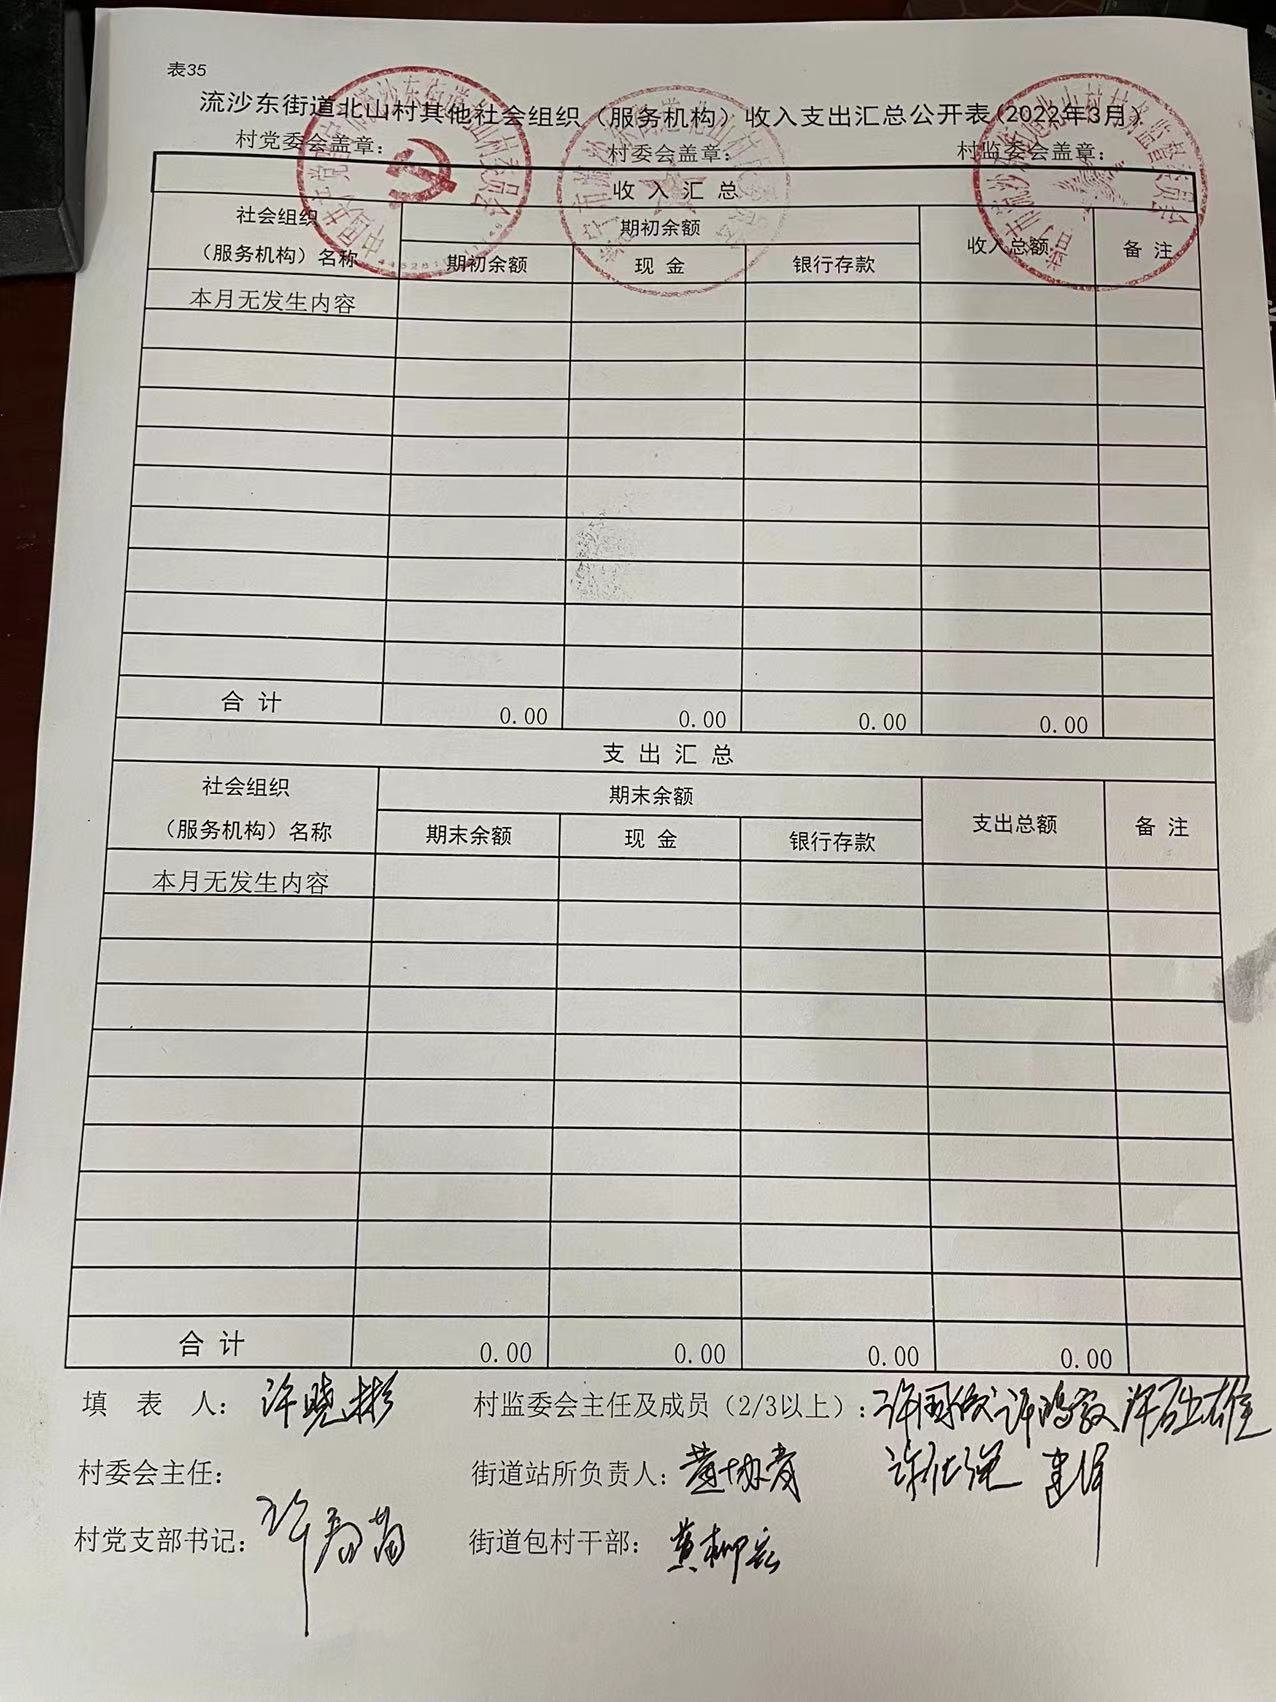 表35
流沙东街道北山村其他社会组织（服务机构）收入支出汇总公开表(2022年3月)
村党委会盖章： 村委会盖章： 村监委会盖章：
收 入 汇 总
社会组织（服务机构）名称 期初余额 收入总额 备 注
期初余额 现 金 银行存款
本月无发生内容
合 计 0.00 0.00 0.00 0.00
支 出 汇 总
社会组织（服务机构）名称 期末余额 支出总额 备 注
期末余额 现 金 银行存款
本月无发生内容
合 计 0.00 0.00 0.00 0.00
填 表 人： 许晓彬 村监委会主任及成员（2/3以上）：
村委会主任： 街道站所负责人：
村党支部书记： 街道包村干部：